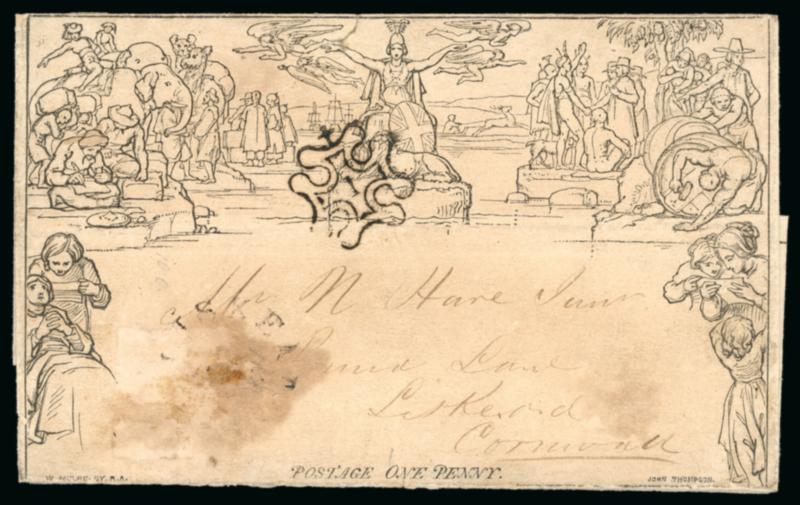 Mr N Hare Junr
Lane
Liskeard
Cornwall
POSTAGE ONE PENNY.
W. MULREADY. R.A.
JOHN THOMPSON.